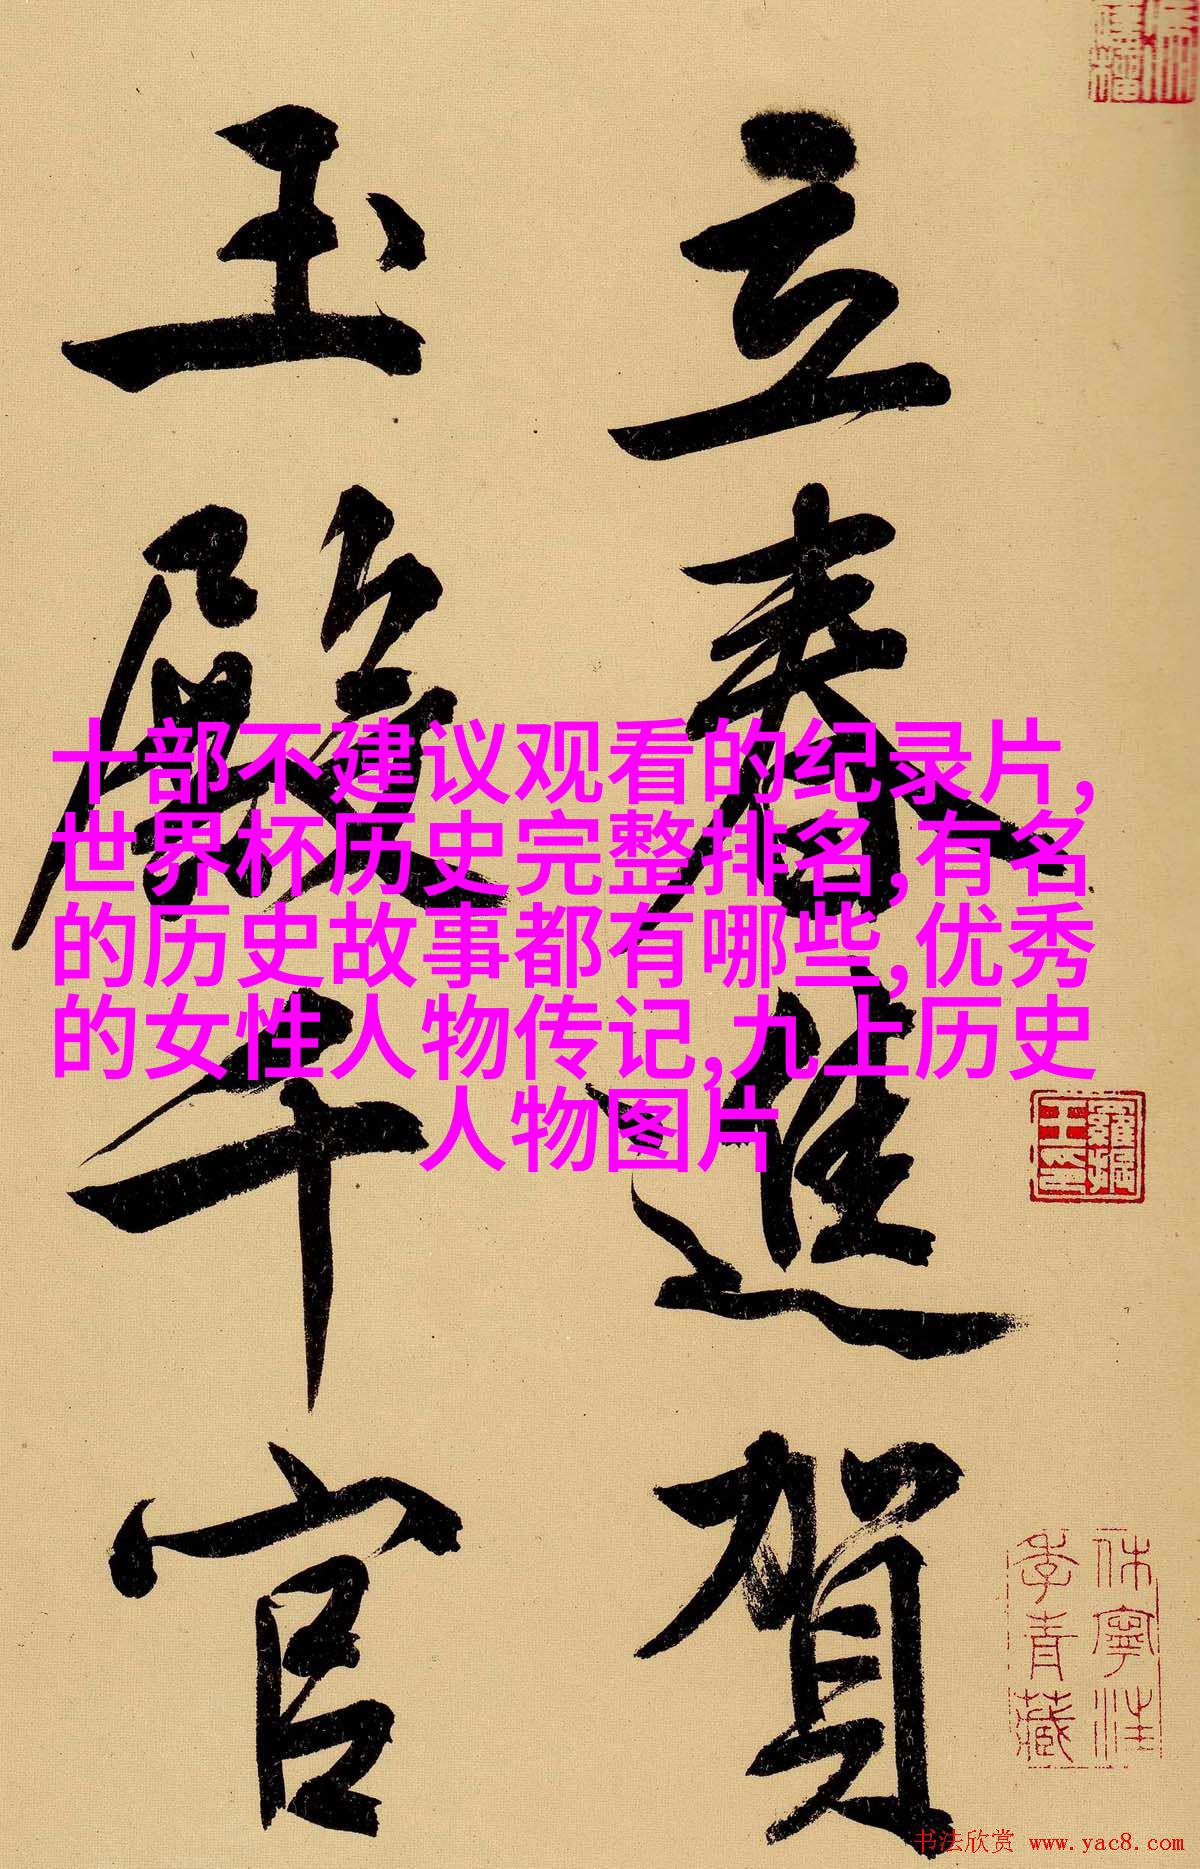 立春進賀
玉殿千官
十部不建议观看的纪录片,
世界杯历史完整排名,有名
的历史故事都有哪些,优秀
的女性人物传记,九上历史
人物图片
休寧汪
季青藏
书法欣赏 www.yac8.com